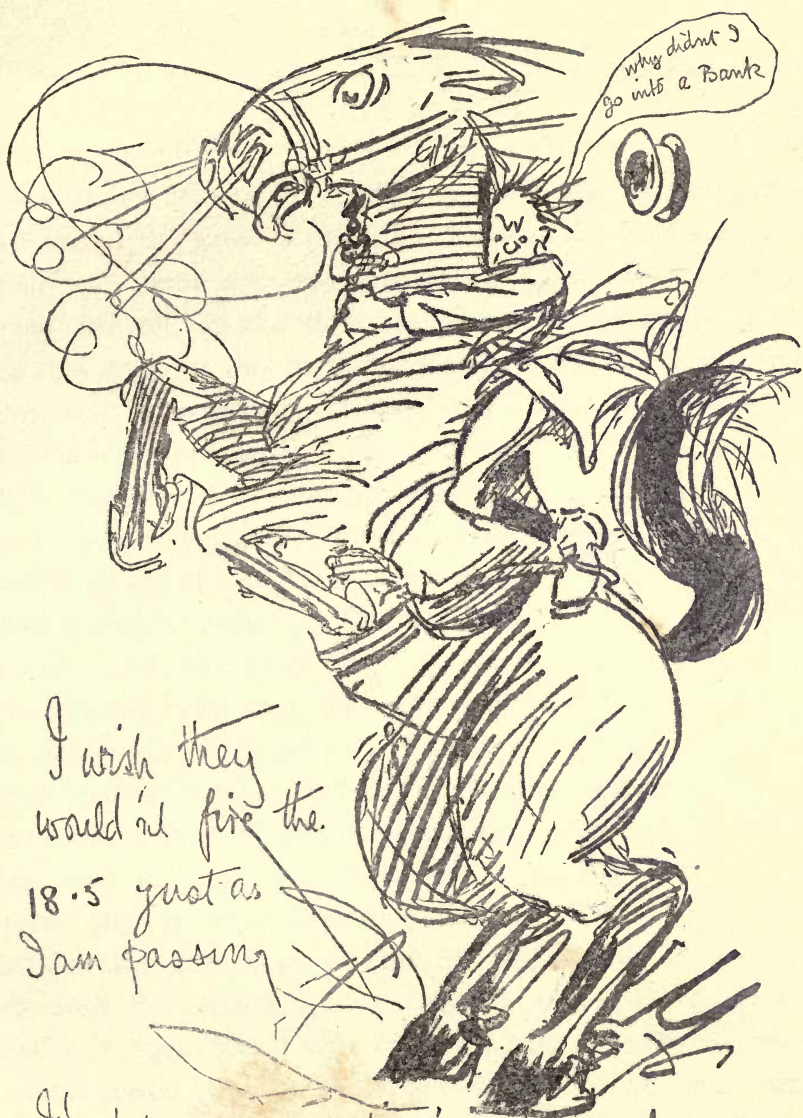 why didnt I
go into a Bank
I wish they
would'nt fire the.
18.5 just as
I am passing